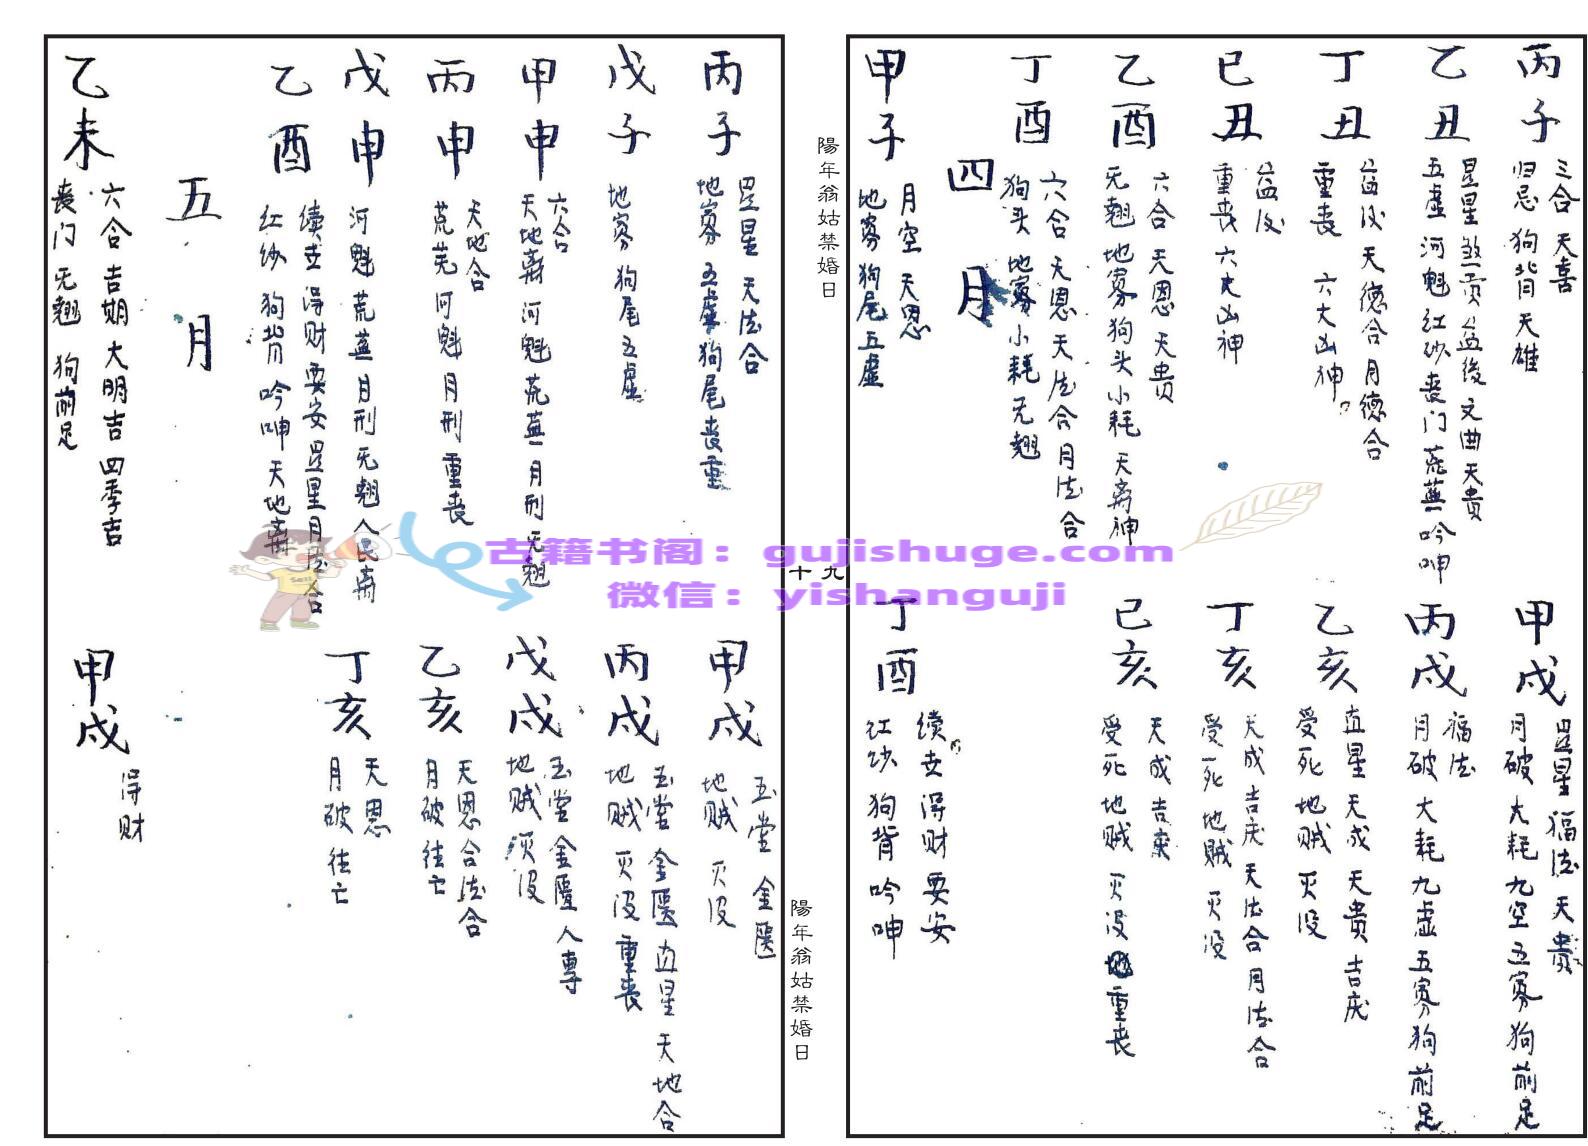 丙子
三合 天喜
归忌 狗背 天雄
乙丑
显星 煞贡 益後 文曲 天贵
五虚 河魁 红纱 丧门 荒蕪 吟呻
丁丑
益後 天德合 月德合
重丧 六大凶神
已丑
益後
重丧 六大凶神
乙酉
六合 天恩 天贵
无翘 地寡 狗头 小耗 天离神
丁酉
六合 天恩 天德合 月德合
狗头 地寡 小耗 无翘
四月
甲子
月空 天恩
地寡 狗尾 五虚
甲戍
显星 福德 天贵
月破 大耗 九空 五寡 狗前足
丙戍
福德
月破 大耗 九虚 五寡 狗前足
乙亥
直星 天成 天贵 吉庆
受死 地贼 灭没
丁亥
天成 吉庆 天德合 月德合
受死 地贼 灭没
已亥
天成 吉庆
受死 地贼 灭没 重丧
丁酉
续世 得财 要安
红纱 狗背 吟呻
陽年翁姑禁婚日
十九
陽年翁姑禁婚日
丙子
显星 天德合
地寡 五虚 狗尾 丧重
戊子
地寡 狗尾 五虚
甲申
六合
天地离 河魁 荒蕪 月刑 无翘
丙申
天地合
荒芜 河魁 月刑 重丧
戊申
河魁 荒蕪 月刑 无翘 人民离
乙酉
续世 得财 要安 显星 月德合
红纱 狗背 吟呻 天地离
五月
乙未
六合 吉期 大明吉 四季吉
丧门 无翘 狗前足
甲戍
玉堂 金匮
地贼 灭没
丙戍
玉堂 金匮 直星 天地合
地贼 灭没 重丧
戊戍
玉堂 金匮 人專
地贼 灭没
乙亥
天恩合 德合
月破 往亡
丁亥
天恩
月破 往亡
甲戍
得财
古籍书阁：gujishuge.com
微信：yishanguji